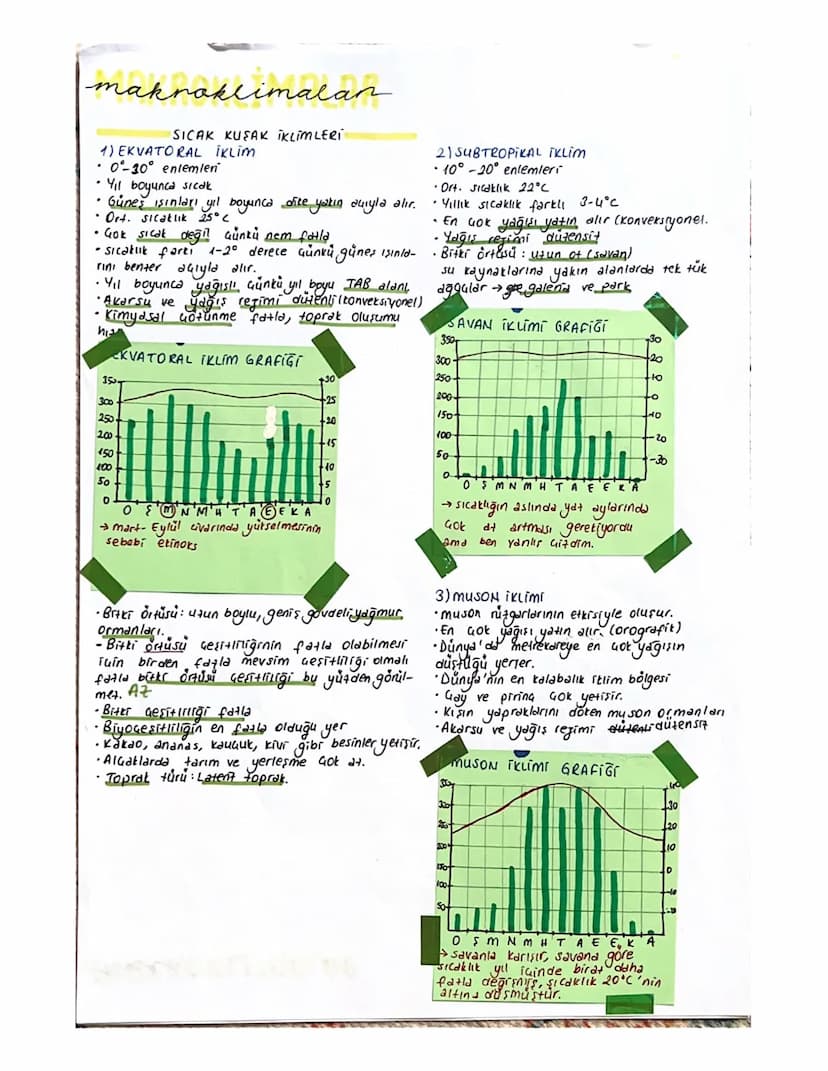 MAKROKLİMALAR
makroklimaları
SICAK KUŞAK İKLİMLERİ
1) EKVATORAL İKLİM
• 0°-10° enlemleri
• Yıl boyunca sıcak
• Güneş ışınları yıl boyunca dike yakın açıyla alır.
• Ort. sıcaklık 25°C
• Çok sıcak değil çünkü nem fazla
• sıcaklık farkı 1-2° derece çünkü güneş ışınla-
rını benzer açıyla alır.
• Yıl boyunca yağışlı çünkü yıl boyu TAB alanı
• Akarsu ve yağış rejimi düzenli (konveksiyonel)
• Kimyasal çözünme fazla, toprak oluşumu
EKVATORAL İKLİM GRAFİĞİ
350
300
250
200
150
100
50
0
30
25
20
15
10
5
0
O Ş M N M H T A E E K A
→ mart- Eylül civarında yükselmesinin
sebebi ekinoks
• Bitki örtüsü: uzun boylu, geniş gövdeli yağmur
ormanları.
- Bitki örtüsü çeşitliliğinin fazla olabilmesi
için birden fazla mevsim çeşitliliği olmalı
fazla bitki örtüsü çeşitliliği bu yüzden görül-
mez. AZ
• Bitki çeşitliliği fazla
• Biyoçeşitliliğin en fazla olduğu yer
• Kakao, ananas, kauçuk, kivi gibi besinler yetişir.
• Alçaklarda tarım ve yerleşme çok az.
• Toprak türü: Laterit toprak.
2) SUBTROPİKAL İKLİM
• 10° -20° enlemleri
• Ort. sıcaklık 22°C
• Yıllık sıcaklık farkı 3-4°C
• En çok yağışı yazın alır (konveksiyonel.
• Yağış rejimi düzensiz
• Bitki örtüsü: uzun ot (savan)
su kaynaklarına yakın alanlarda tek tük
ağaçlar → galeria ve park
SAVAN İKLİMİ GRAFİĞİ
350
300
250
200
150
100
50
0
30
20
10
0
-10
-20
-30
O Ş M N M H T A E E K A
→ sıcaklığın aslında yaz aylarında
çok az artması gerekiyordu
ama ben yanlış çizdim.
3) MUSON İKLİMİ
• muson rüzgarlarının etkisiyle oluşur.
• En çok yağışı yazın alır. (orografik)
• Dünya'da metrekareye en çok yağışın
düştüğü yerler.
• Dünya'nın en kalabalık iklim bölgesi
• Çay ve pirinç çok yetişir.
• Kışın yapraklarını döken muson ormanları
• Akarsu ve yağış rejimi düzenli düzensiz
MUSON İKLİMİ GRAFİĞİ
350
300
250
200
150
100
50
40
30
20
10
0
O Ş M N M H T A E E K A
→ savanla karışır, savana göre
sıcaklık yıl içinde biraz daha
fazla değişmiş, sıcaklık 20°C'nin
altına düşmüştür.